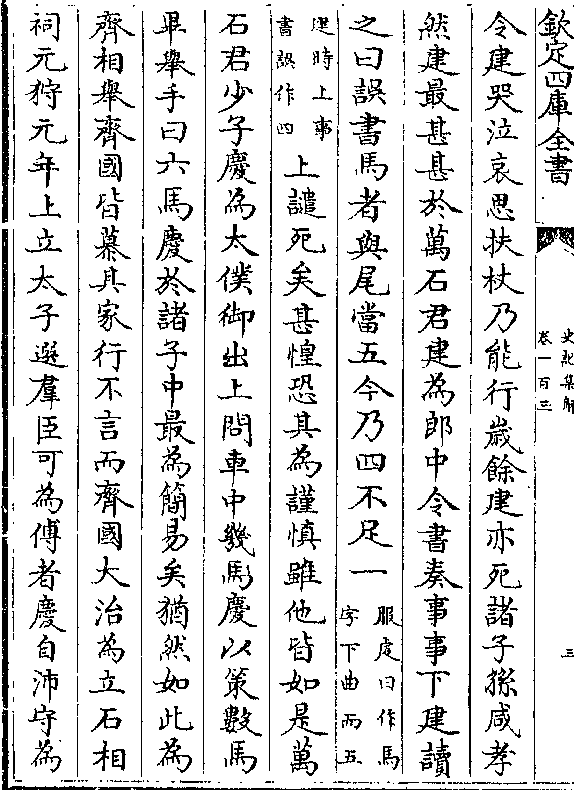 欽定四庫全書
史記集解
卷一百三
三
令建哭泣哀思扶杖乃能行歲餘建亦死諸子孫咸孝
然建最甚甚於萬石君建為郎中令書奏事事下建讀
之曰誤書馬者與尾當五今乃四不足一服虔曰作馬字下曲而五
建時上事書誤作四上譴死矣甚惶恐其為謹慎雖他皆如是萬
石君少子慶為太僕御出上問車中幾馬慶以策數馬
畢舉手曰六馬慶於諸子中最為簡易矣猶然如此為
齊相舉齊國皆慕其家行不言而齊國大治為立石相
祠元狩元年上立太子選羣臣可為傅者慶自沛守為